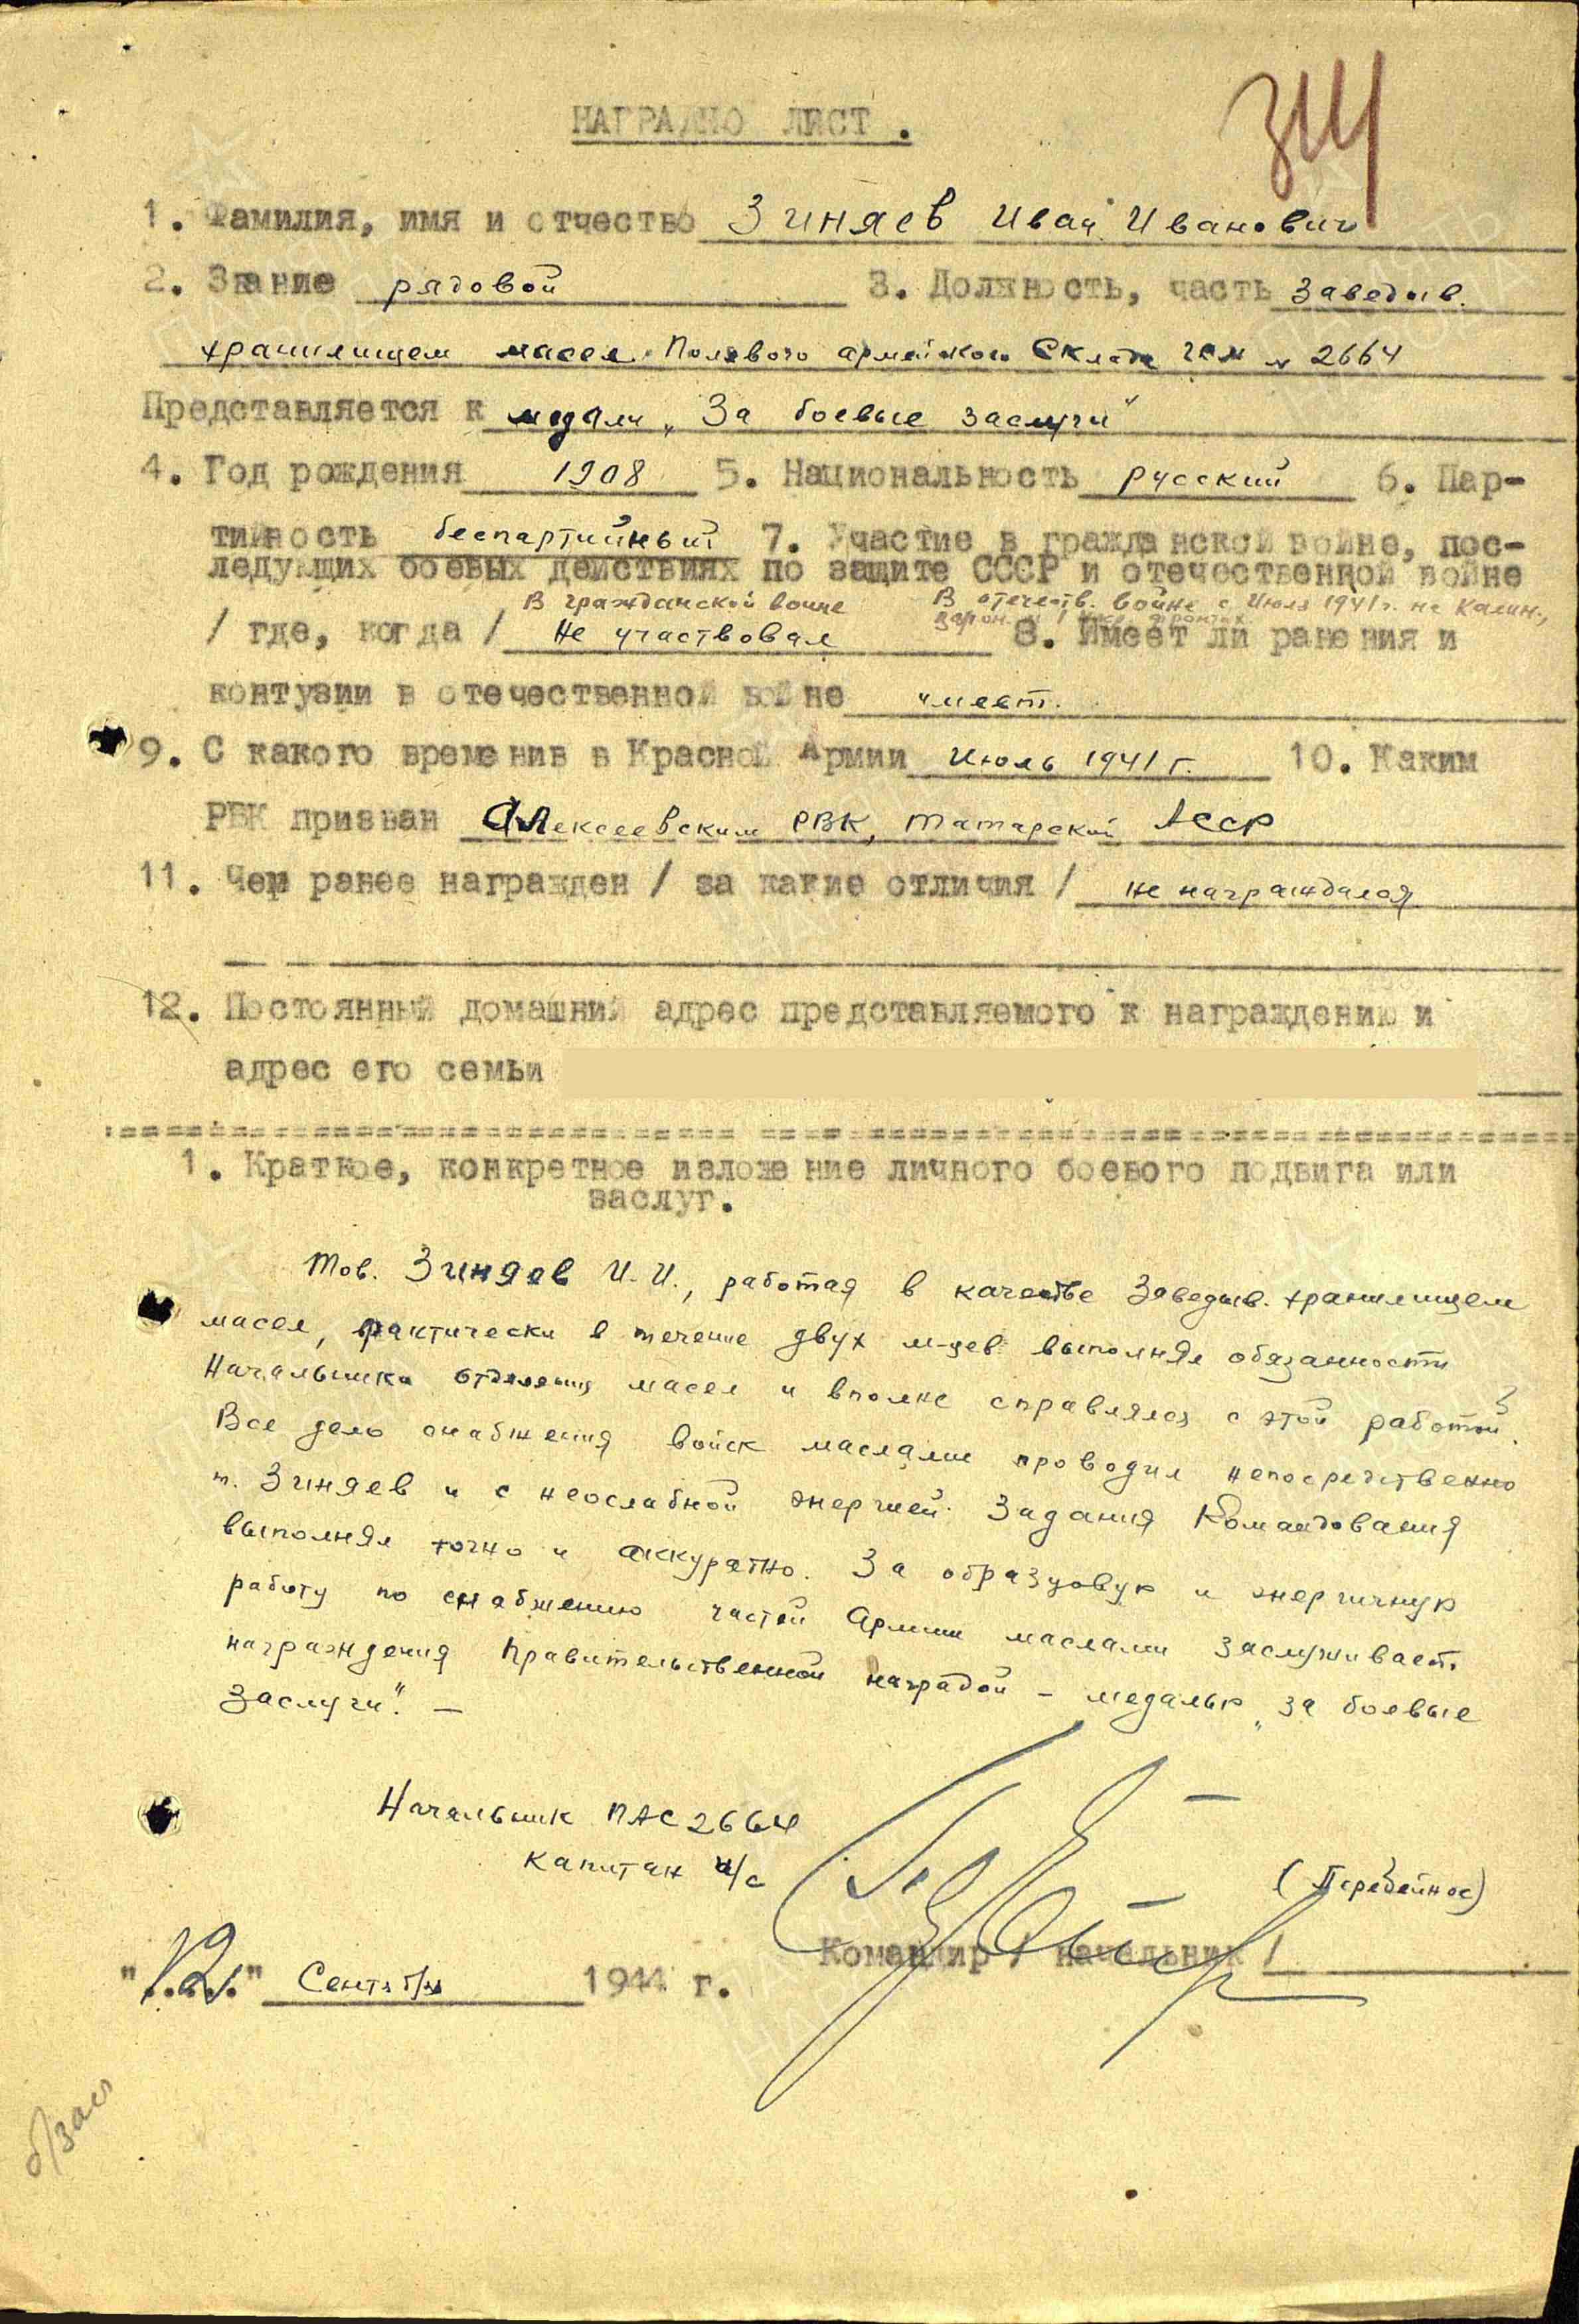 314
НАГРАДНО ЛИСТ.
1. Фамилия, имя и отчество Зиняев Иван Иванович
2. Звание рядовой 3. Должность, часть Заведыв.
хранилищем масел Полевого армейского Склада ГСМ № 2664
Представляется к медали „За боевые заслуги"
4. Год рождения 1908 5. Национальность русский 6. Пар-
тийность беспартийный 7. Участие в гражданской войне, пос-
ледующих боевых действиях по защите СССР и отечественной войне
В гражданской войне В отечеств. войне с Июля 1941 г. на Калин.,
/ где, когда / Не участвовал фронтах 8. Имеет ли ранения и
контузии в отечественной войне имеет.
9. С какого времянив в Красной Армии Июль 1941 г. 10. Каким
РВК призван Алексеевским РВК, Татарской АССР
11. Чем ранее награжден / за какие отличия / не награждался
12. Постоянный домашний адрес представляемого к награждению и
адрес его семьи
1. Краткое, конкретное изложение личного боевого подвига или
заслуг.
Тов. Зиняев И. И., работая в качестве Заведыв. хранилищем
масел, фактически в течение двух м-цев выполнял обязанности
Начальника отделения масел и вполне справлялся с этой работой.
Все дело снабжения войск маслами проводил непосредственно
т. Зиняев и с неослабной энергией. Задания Командования
выполнял точно и аккуратно. За образцовую и энергичную
работу по снабжению частей Армии маслами заслуживает
награждения Правительственной наградой – медалью „За боевые
заслуги". –
Начальник ПАС 2664
капитан и/с
(Перебейнос)
Командир / начальник /
"12." Сентября 1944 г.
б/зас